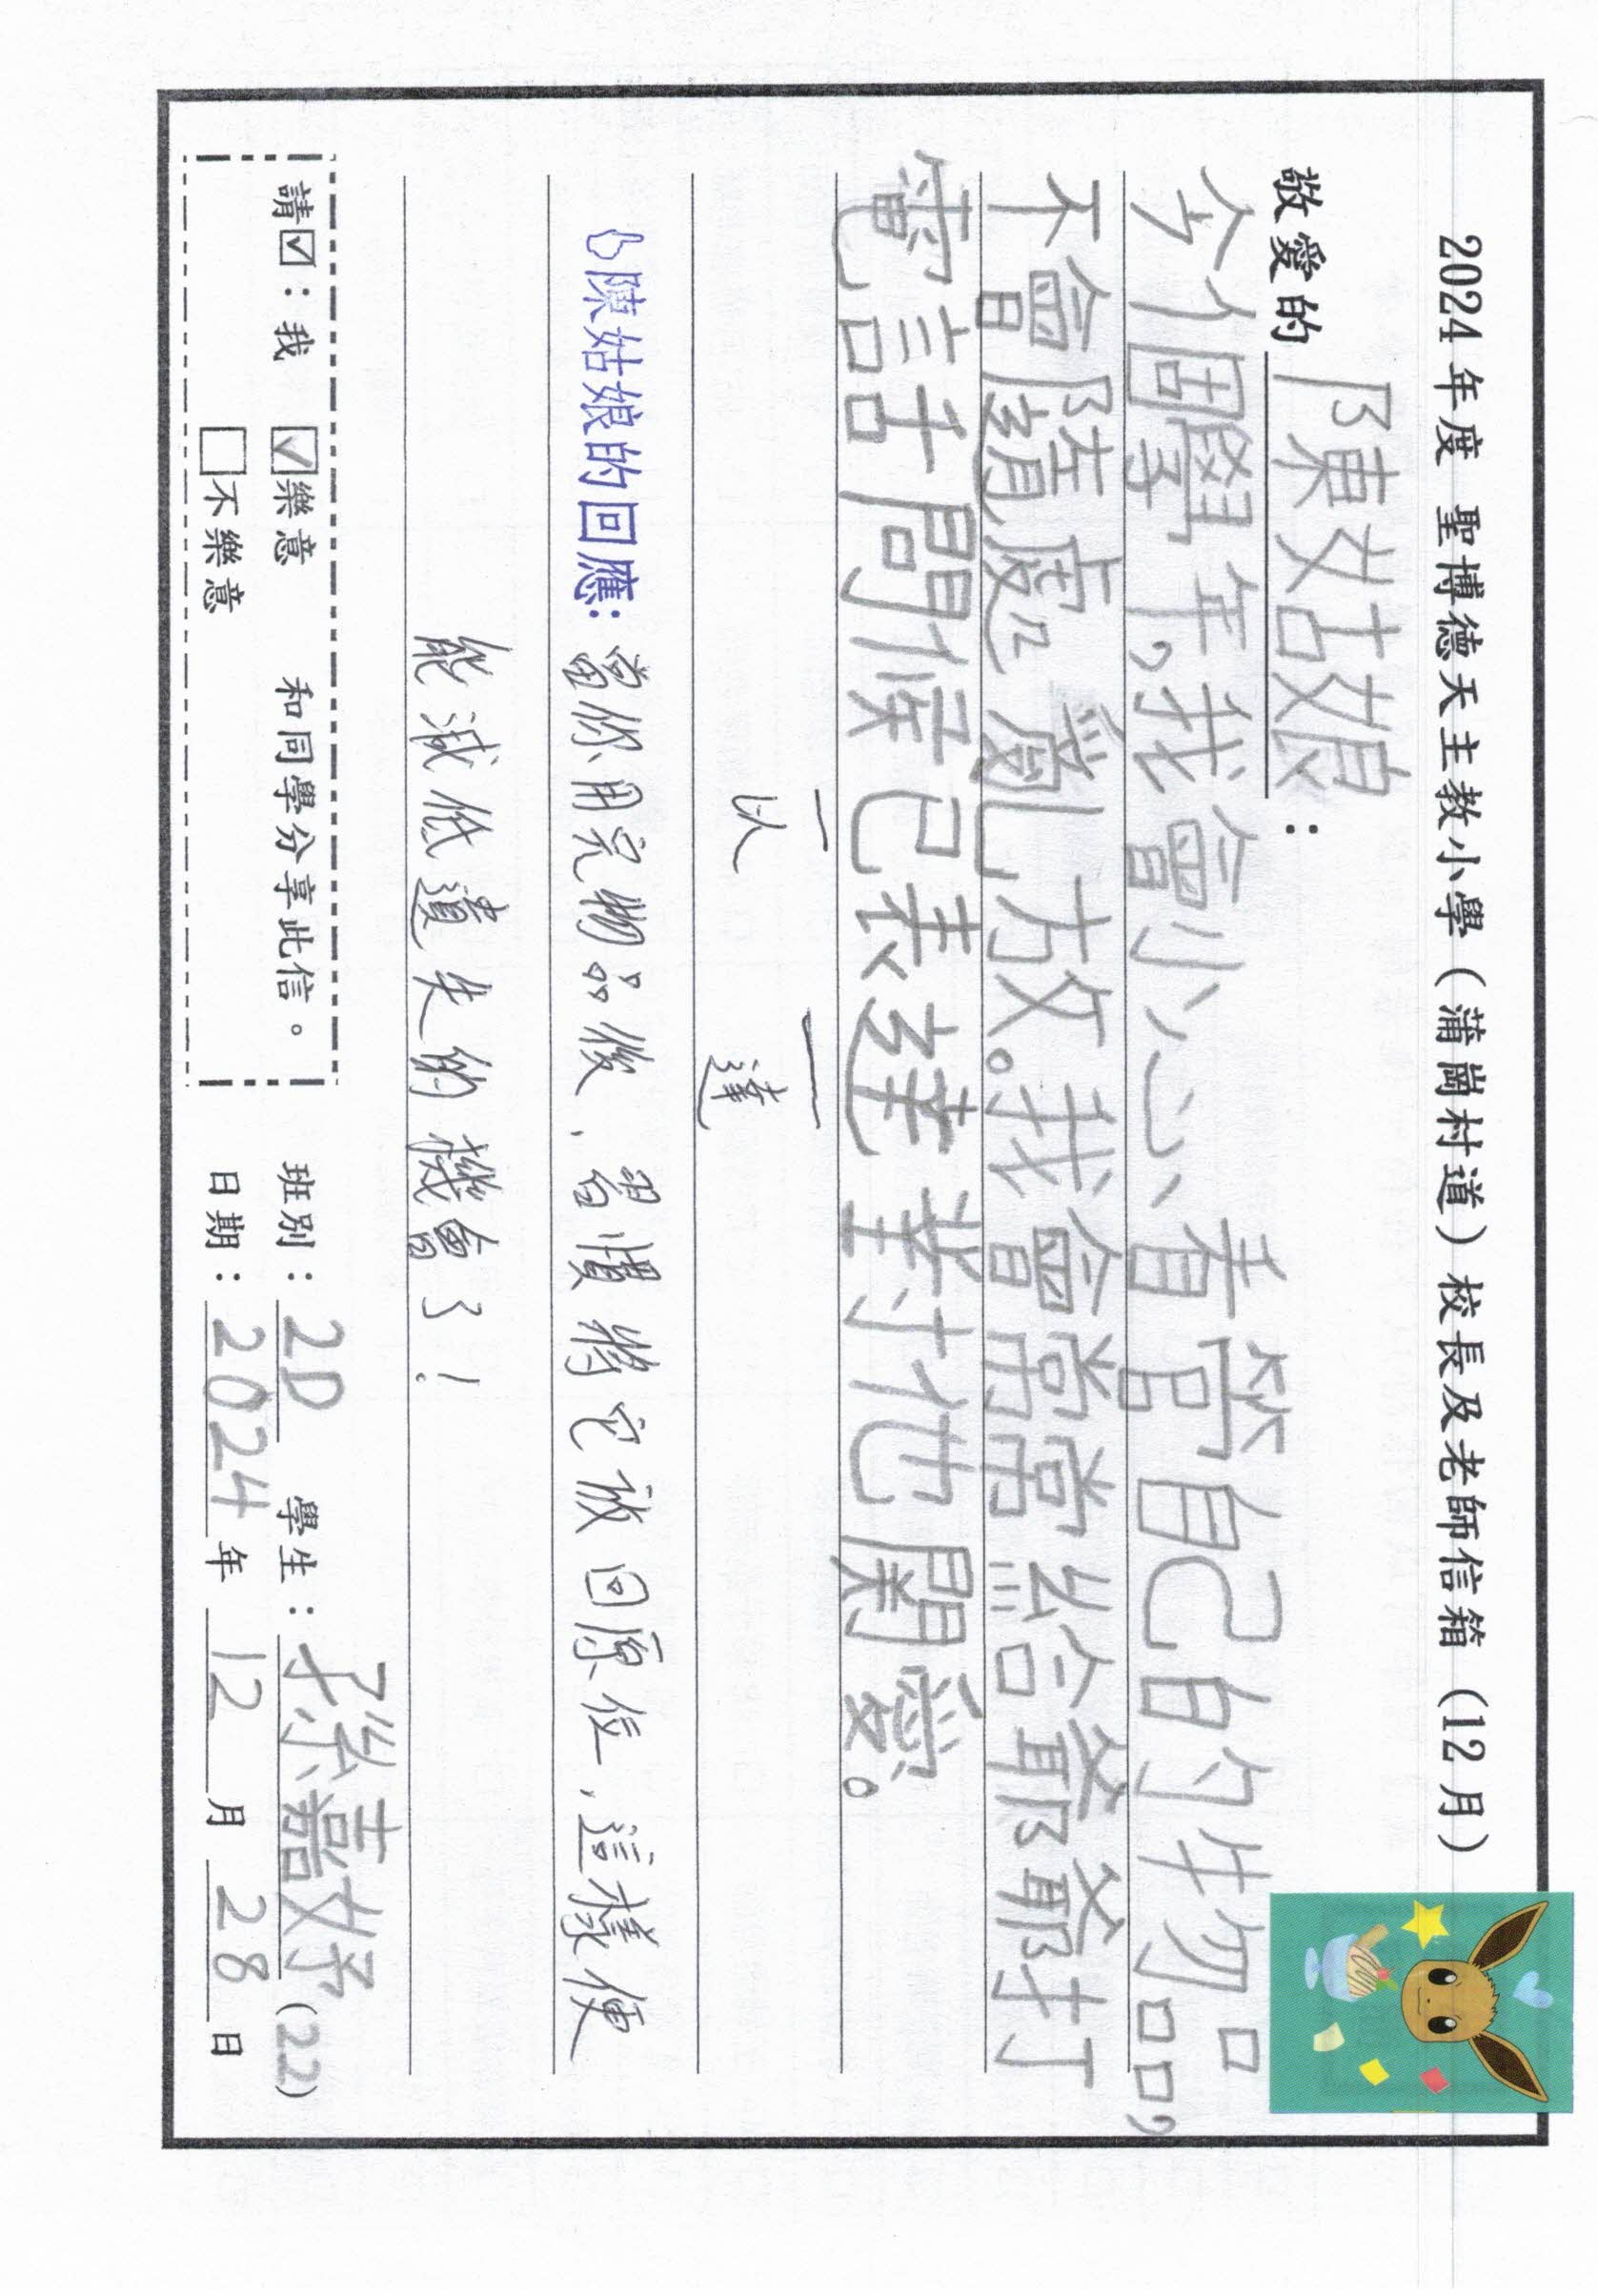 2024年度 聖博德天主教小學（蒲崗村道）校長及老師信箱（12月）
敬愛的 陳姑娘：
今個學年，我會小心看管自己的物品，
不會隨處亂放。我會常常給爺爺打
電話問候已表達對他關愛。
以 達
陳姑娘的回應：當你用完物品後，習慣將它放回原位，這樣便
能減低遺失的機會了！
請☑：我 ☑樂意 和同學分享此信。
□不樂意
班別：2D 學生：孫嘉妤(22)
日期：2024年12月28日